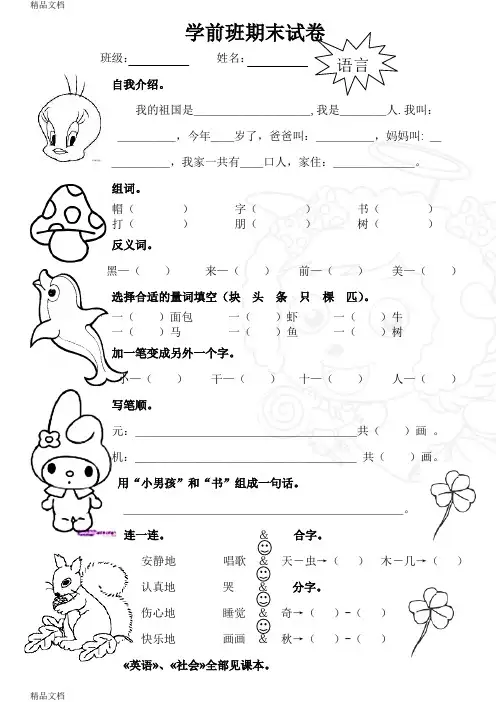 精品文档
学前班期末试卷
班级: 姓名:
语言
自我介绍。
我的祖国是____________________,我是________人.我叫:
__________，今年____岁了，爸爸叫: __________，妈妈叫: __
__________，我家一共有____口人，家住: ______________。
组词。
帽（ ） 字（ ） 书（ ）
打（ ） 朋（ ） 树（ ）
反义词。
黑—（ ） 来—（ ） 前—（ ） 美—（ ）
选择合适的量词填空（块 头 条 只 棵 匹）。
一（ ）面包 一（ ）虾 一（ ）牛
一（ ）马 一（ ）鱼 一（ ）树
加一笔变成另外一个字。
小—（ ） 干—（ ） 十—（ ） 人—（ ）
写笔顺。
元: ______________________________________共（ ）画 。
机: ______________________________________ 共（ ）画。
用“小男孩”和“书”组成一句话。
________________________________________________。
连一连。 & 合字。
安静地 唱歌 & 天－虫→（ ） 木－几→（ ）
认真地 哭 & 分字。
伤心地 睡觉 & 奇→（ ）-（ ）
快乐地 画画 & 秋→（ ）-（ ）
«英语»、«社会»全部见课本。
精品文档